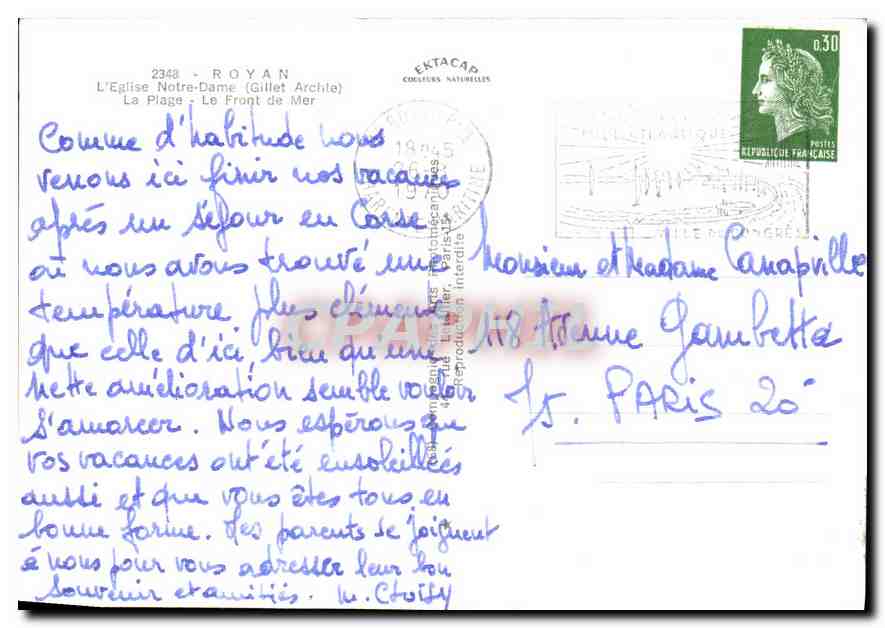 2348 - ROYAN
L'Eglise Notre-Dame (Gillet Archte)
La Plage - Le Front de Mer
EKTACAP
COULEURS NATURELLES
0,30
POSTES
REPUBLIQUE FRANÇAISE
18H45
26
19
MARITIME
VILLE DE CONGRÈS
Comme d'habitude nous
venons ici finir nos vacances
après un séjour en Corse
où nous avons trouvé une
température plus clémente
que celle d'ici, bien qu'une
nette amélioration semble vouloir
s'amorcer. Nous espérons que
vos vacances ont été ensoleillées
aussi et que vous êtes tous en
bonne forme. Les parents se joignent
à nous pour vous adresser leur bon
souvenir et amitiés. M. Choisy
Monsieur et Madame Canapville
118 Avenue Gambetta
75. PARIS 20è
Arts Photomécaniques
44, rue Letellier, Paris-15e
Reproduction interdite
CPARAMA